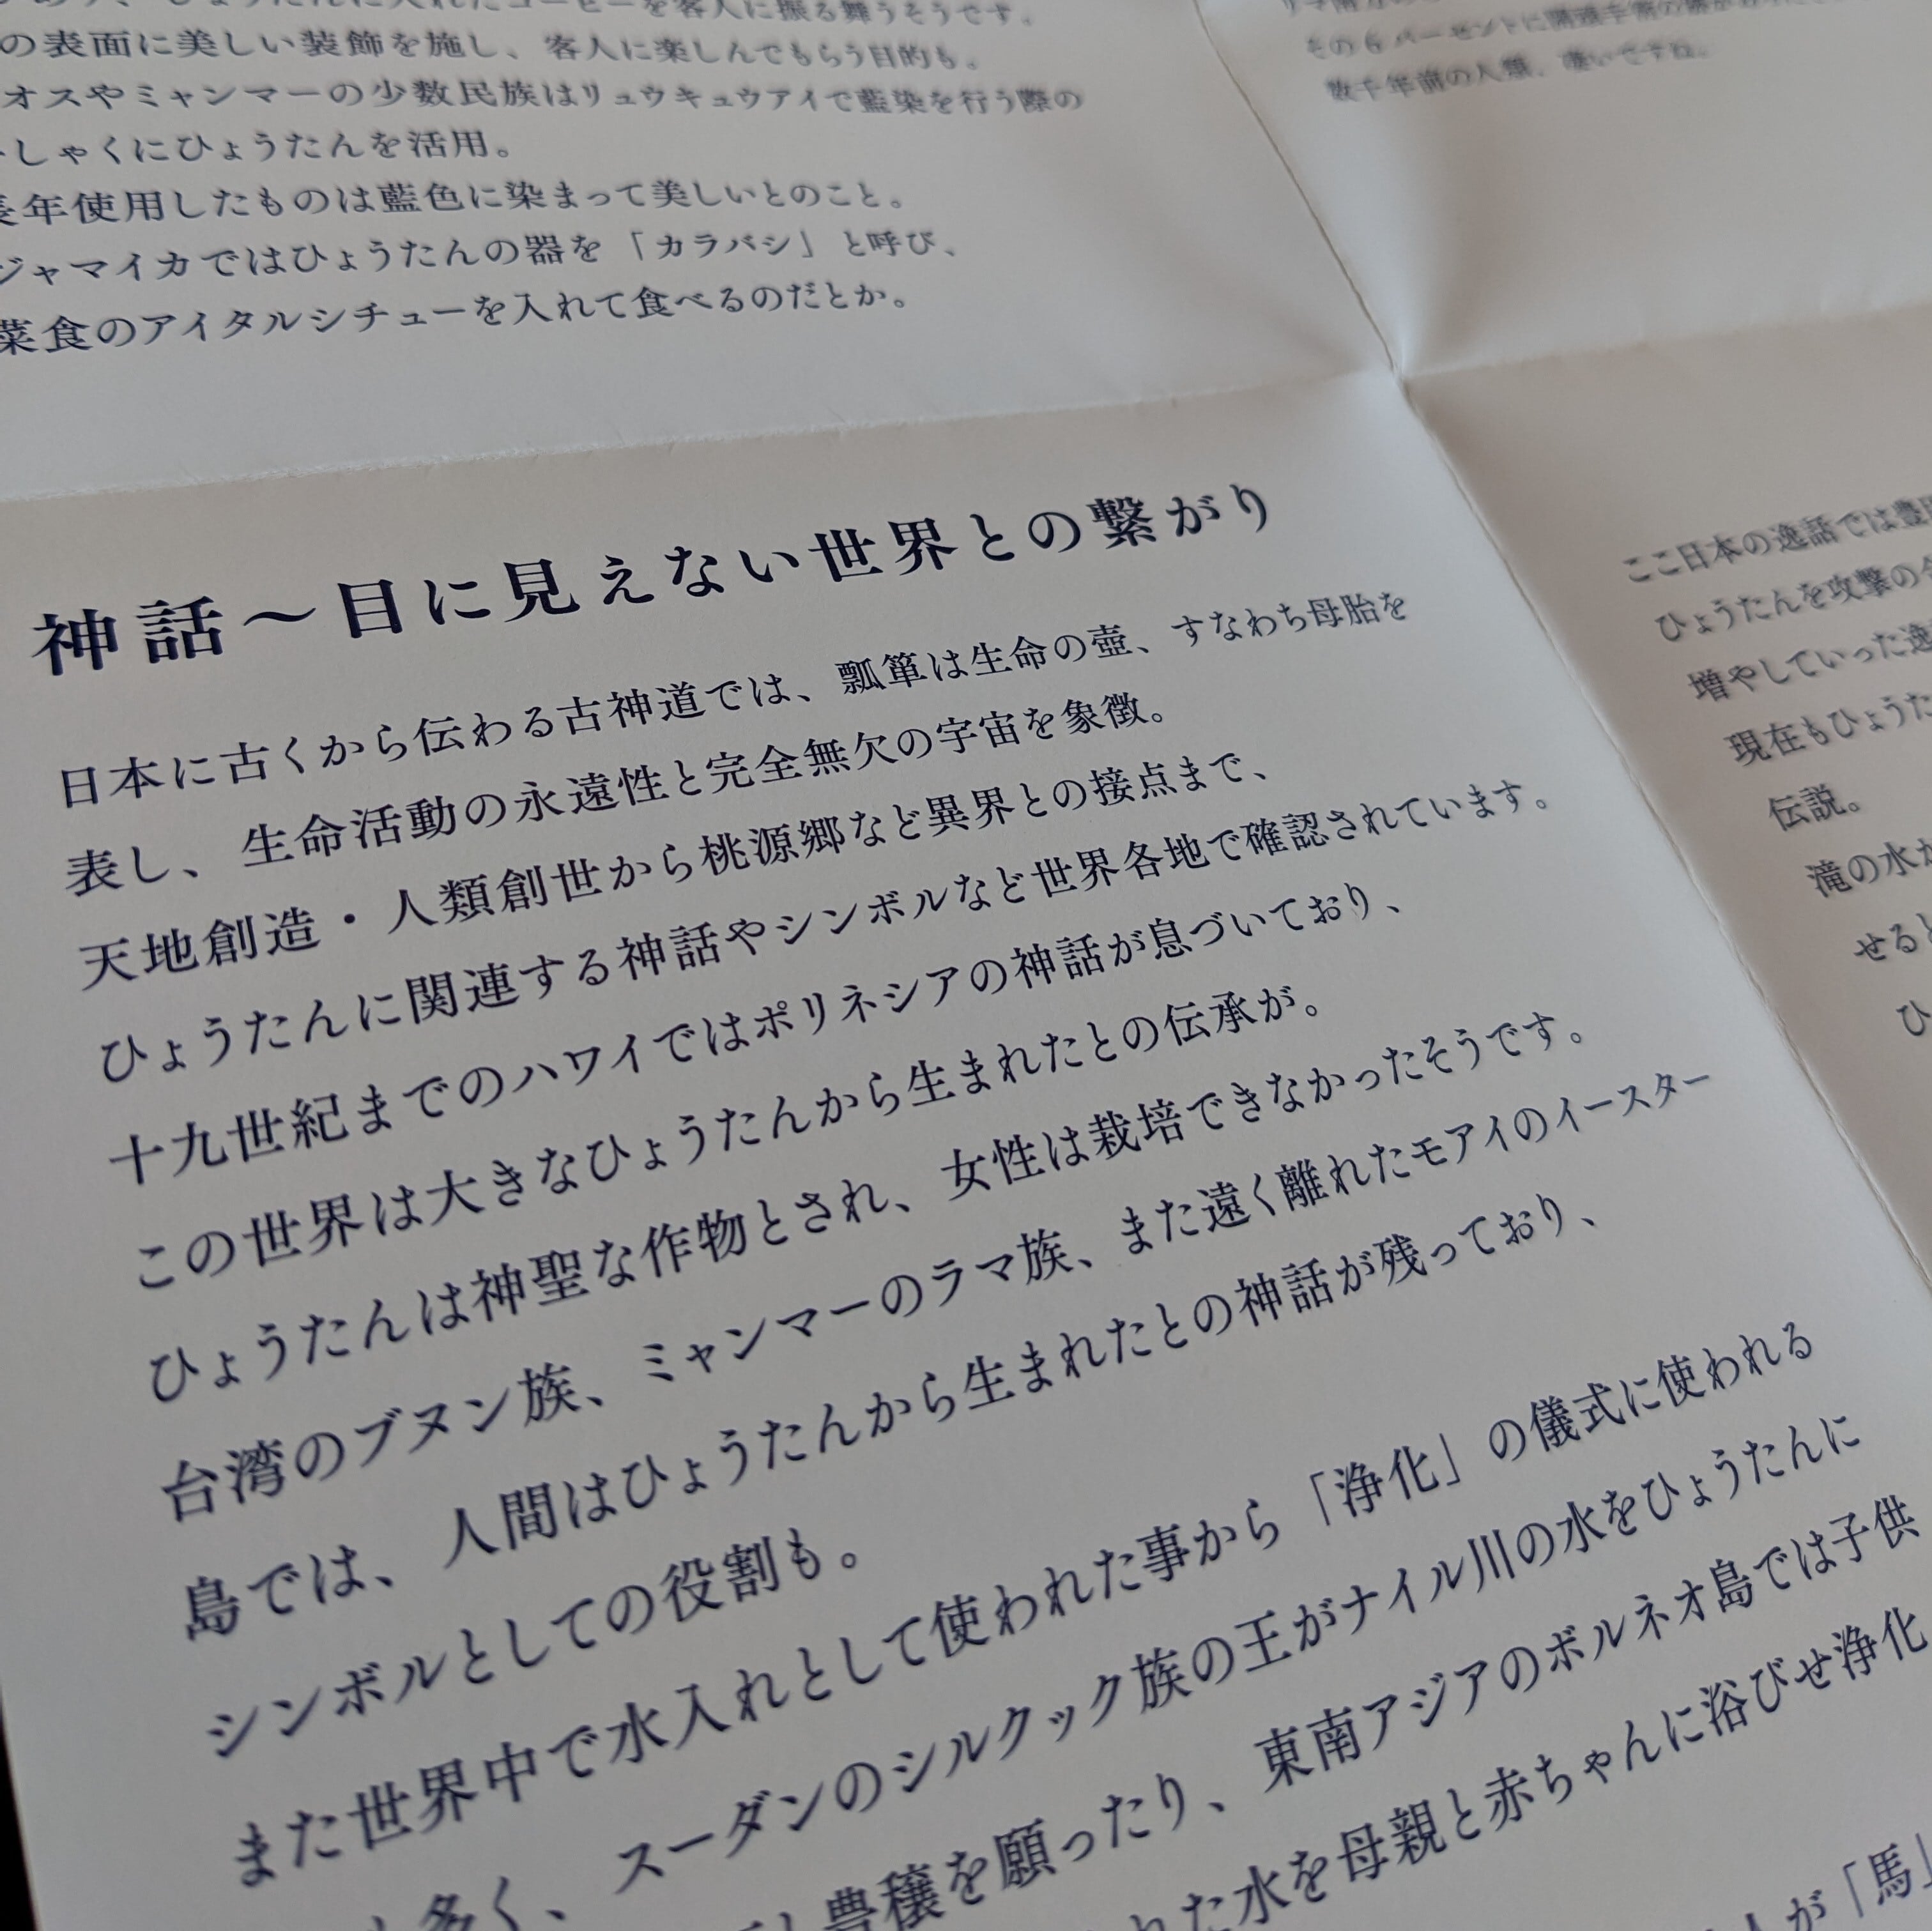 客人に振る舞うそうです。
の表面に美しい装飾を施し、客人に楽しんでもらう目的も。
オスやミャンマーの少数民族はリュウキュウアイで藍染を行う際の
しゃくにひょうたんを活用。
年使用したものは藍色に染まって美しいとのこと。
ジャマイカではひょうたんの器を「カラバシ」と呼び、
菜食のアイタルシチューを入れて食べるのだとか。
数千年前の人類、凄いですね。
神話〜目に見えない世界との繋がり
日本に古くから伝わる古神道では、瓢箪は生命の壺、すなわち母胎を
表し、生命活動の永遠性と完全無欠の宇宙を象徴。
天地創造・人類創世から桃源郷など異界との接点まで、
ひょうたんに関連する神話やシンボルなど世界各地で確認されています。
十九世紀までのハワイではポリネシアの神話が息づいており、
この世界は大きなひょうたんから生まれたとの伝承が。
ひょうたんは神聖な作物とされ、女性は栽培できなかったそうです。
台湾のブヌン族、ミャンマーのラマ族、また遠く離れたモアイのイースター
島では、人間はひょうたんから生まれたとの神話が残っており、
シンボルとしての役割も。
また世界中で水入れとして使われた事から「浄化」の儀式に使われる
多く、スーダンのシルクック族の王がナイル川の水をひょうたんに
豊穣を願ったり、東南アジアのボルネオ島では子供
れた水を母親と赤ちゃんに浴びせ浄化
が「馬」
ここ日本の逸話では豊
ひょうたんを攻撃の
増やしていった逸
現在もひょうた
伝説。
滝の水が
せると
ひ